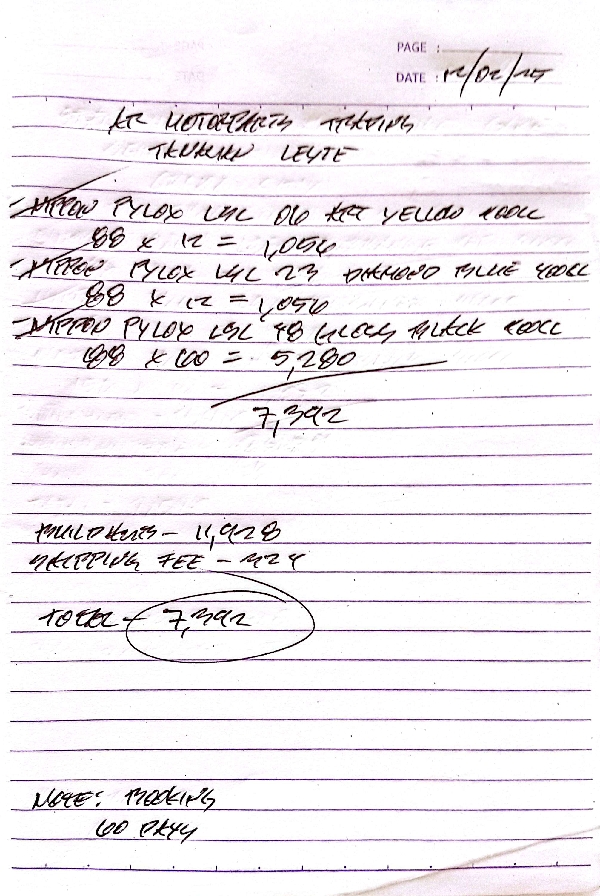 PAGE :
DATE : 12/02/25
KR MOTORPARTS TRADING
TANAUAN LEYTE
- NIPPON PYLOX LAC 06 YELLOW 400CC
88 x 12 = 1,056
- NIPPON PYLOX LAC 23 DIAMOND BLUE 400CC
88 x 12 = 1,056
- NIPPON PYLOX LAC 48 GLOSS BLACK 400CC
88 x 60 = 5,280
7,392
- 11,928
SHIPPING FEE - 324
TOTAL - 7,392
NOTE: BOOKING
60 DAYS